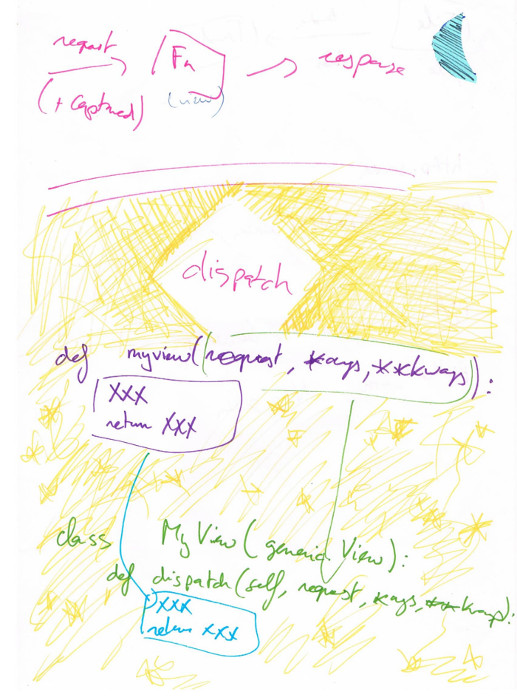 request → Fn → response
(+ Captured) (view)
dispatch
def myview(request, *args, **kwargs):
XXX
return XXX
class MyView(generic.View):
def dispatch(self, request, *args, **kwargs):
XXX
return XXX